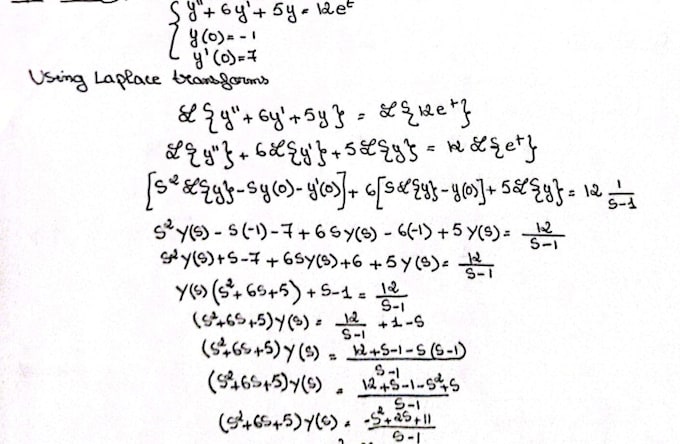 y'' + 6y' + 5y = 12e^t
y(0) = -1
y'(0) = 7
Using Laplace transforms
ℒ{y'' + 6y' + 5y} = ℒ{12e^t}
ℒ{y''} + 6ℒ{y'} + 5ℒ{y} = 12 ℒ{e^t}
[s²ℒ{y} - sy(0) - y'(0)] + 6[sℒ{y} - y(0)] + 5ℒ{y} = 12 1/(s-1)
s²Y(s) - s(-1) - 7 + 6sY(s) - 6(-1) + 5Y(s) = 12/(s-1)
s²Y(s) + s - 7 + 6sY(s) + 6 + 5Y(s) = 12/(s-1)
Y(s)(s² + 6s + 5) + s - 1 = 12/(s-1)
(s² + 6s + 5)Y(s) = 12/(s-1) + 1 - s
(s² + 6s + 5)Y(s) = (12 + s - 1 - s(s-1))/(s-1)
(s² + 6s + 5)Y(s) = (12 + s - 1 - s² + s)/(s-1)
(s² + 6s + 5)Y(s) = (-s² + 2s + 11)/(s-1)